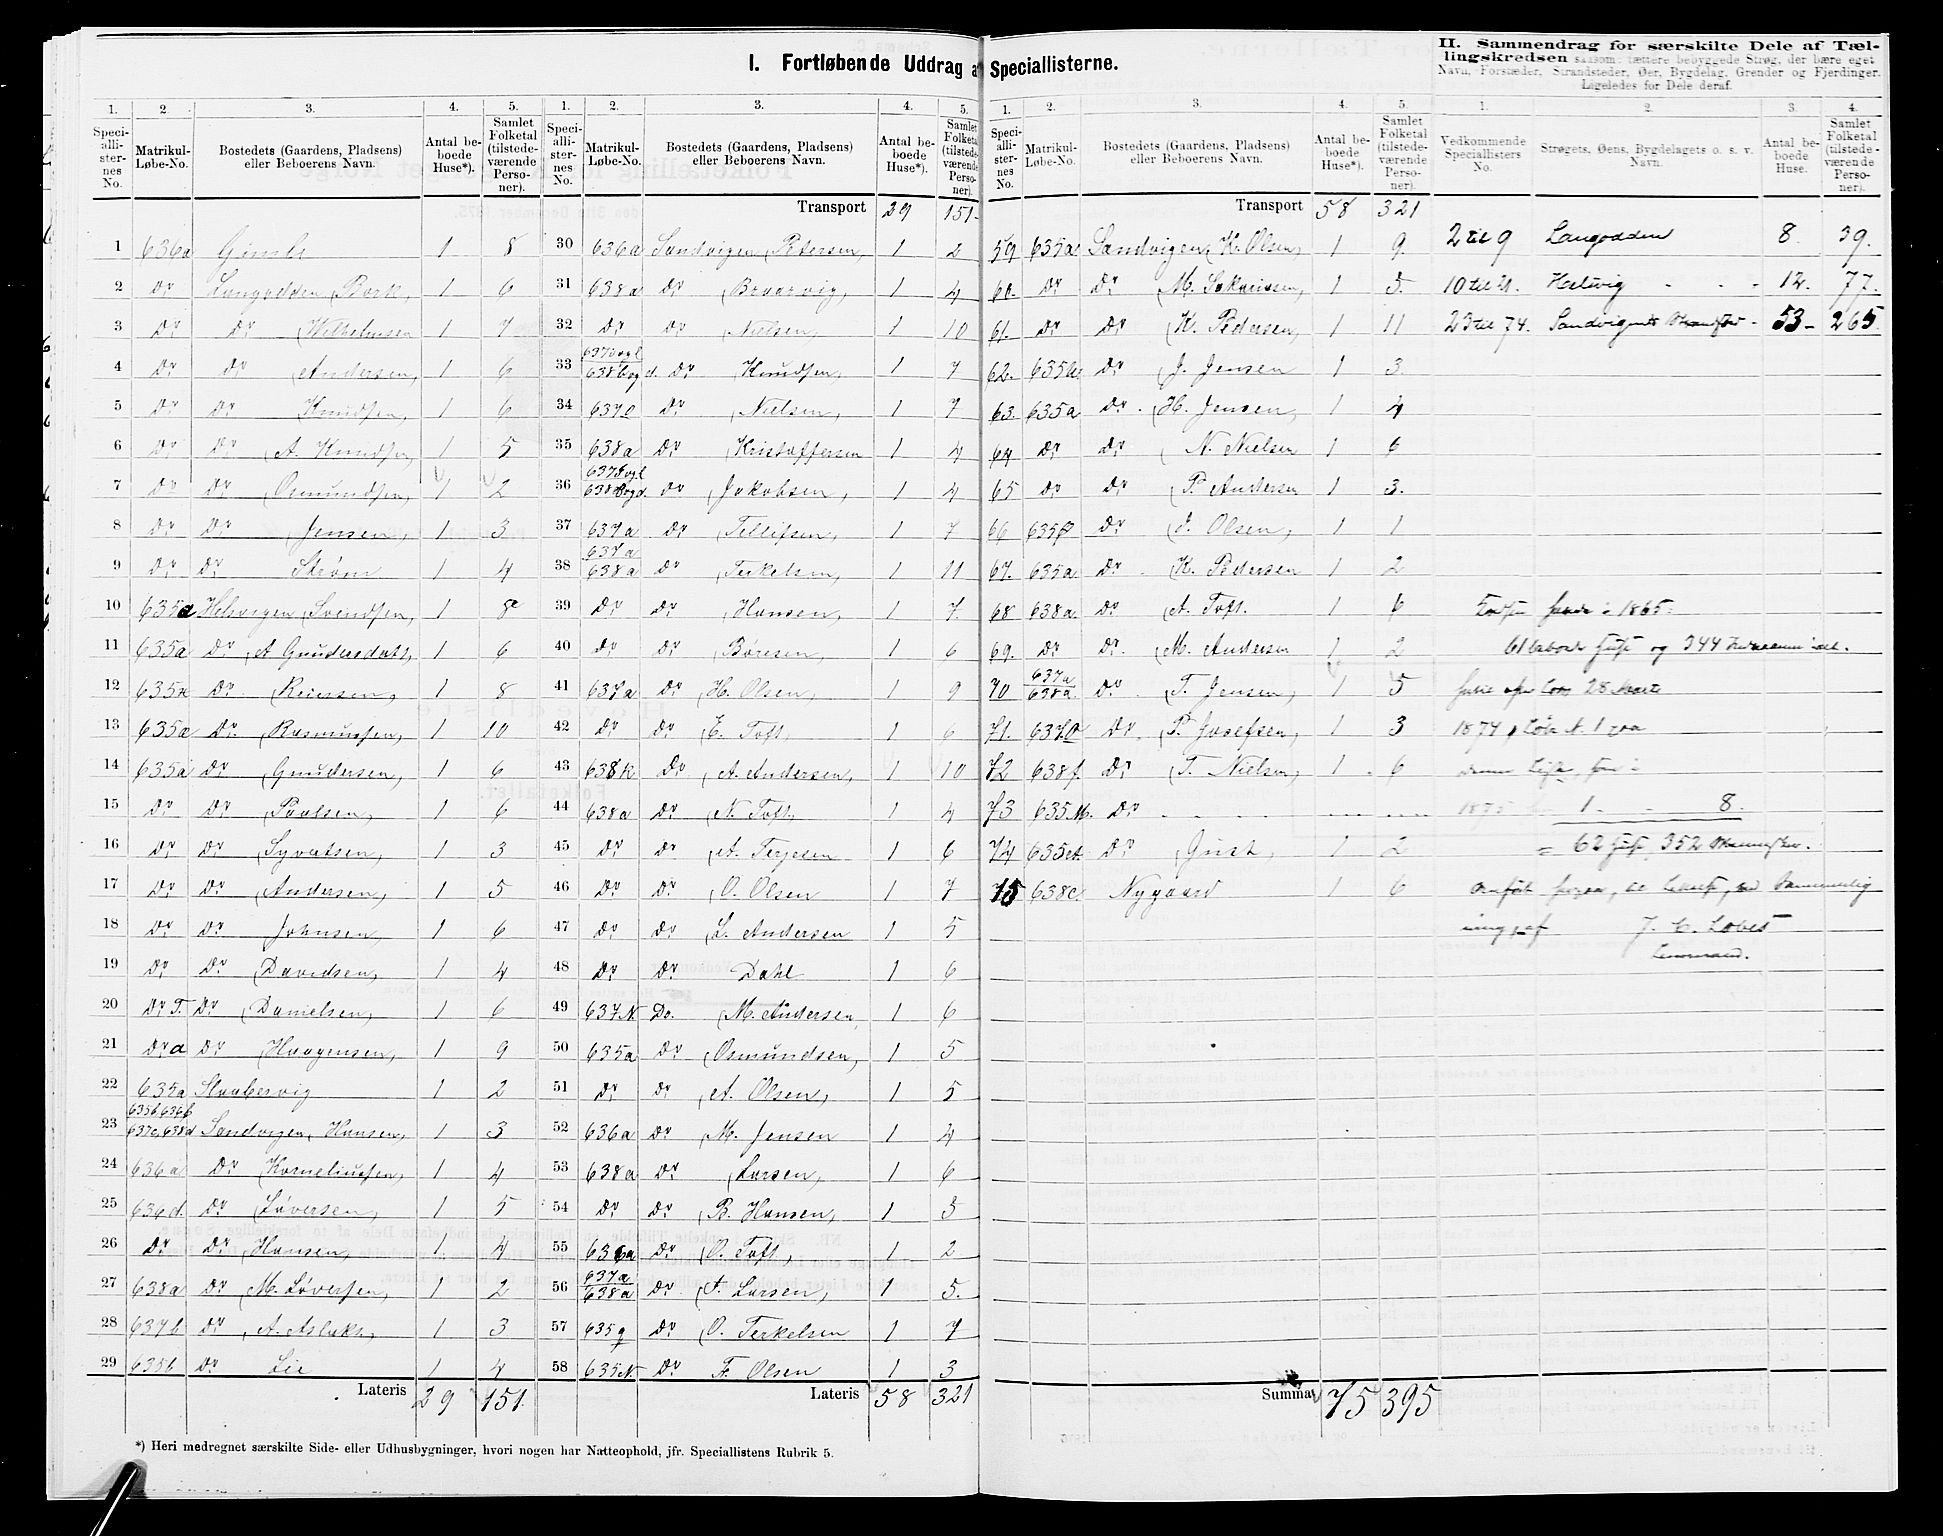 I. Fortløbende Uddrag a Speciallisterne.
1. 2. 3. 4. 5.
Speciallisternes No. Matrikul-Løbe-No. Bostedets (Gaardens, Pladsens) eller Beboerens Navn. Antal beboede Huse*). Samlet Folketal (tilstedeværende Personer).
1 636a Gimle 1 8
2 Do Langodden, Bork, 1 6
3 Do Do (Wilhelmsen 1 7
4 Do Do (Andersen, 1 6
5 Do Do (Knudsen, 1 6
6 Do Do (A. Knudsen, 1 5
7 Do Do (Osmundsen, 1 2
8 Do Do (Jensen, 1 3
9 Do Do Strøm 1 4
10 635a Helvigen (Svendsen, 1 8
11 635a Do (A Gundersdatt, 1 6
12 635 Do (Reiersen, 1 8
13 635a Do (Rasmussen, 1 10
14 635a Do (Gundersen, 1 6
15 Do Do (Paulsen, 1 6
16 Do Do (Syvertsen, 1 3
17 Do Do (Andersen, 1 5
18 Do Do Johnsen, 1 6
19 Do Do (Davidsen, 1 4
20 Do T. Do (Danielsen, 1 6
21 Do a Do (Haagensen, 1 9
22 635a Slaabervig 1 2
635b, 636b
23 637c, 638d Sandvigen, Hansen, 1 3
24 636a Do (Korneliussen, 1 4
25 636d. Do (Løversen, 1 5
26 Do Do (Hansen, 1 4
27 638a Do (M. Løversen, 1 2
28 637b Do (A. Aslaks, 1 3
29 635b Do Lie 1 4
Lateris 29 151.
1. 2. 3. 4. 5.
Speciallisternes No. Matrikul-Løbe-No. Bostedets (Gaardens, Pladsens) eller Beboerens Navn. Antal beboede Huse*). Samlet Folketal (tilstedeværende Personer).
Transport 29 151.
30 636a Sandvigen (Petersen, 1 2
31 638a Do (Bvarvig, 1 4
32 Do Do (Nielsen, 1 10
33 638bogd. Do (Knudsen, 1 7
34 637l Do (Nielsen, 1 7
35 638a Do (Kristoffersen 1 4
36 Do (Jakobsen, 1 4
37 637a Do (Tellefsen, 1 7
637a
38 638a Do (Terkelsen, 1 11
39 Do Do (Hansen, 1 7.
40 Do Do (Børesen, 1 6
41 637a Do (H. Olsen, 1 9
42 Do Do (E. Toft, 1 6
43 638k Do (A. Andersen, 1 10
44 638a Do (N. Toft, 1 4
45 Do Do (A. Terjesen 1 6
46 Do Do (O. Olsen 1 7
47 Do Do (L. Andersen 1 5
48 Do Do Dahl 1 6
49 637N. Do. (M. Andersen, 1 6
50 635a Do (Osmundsen, 1 5
51 Do Do (A. Olsen, 1 5
52 636a Do (M. Jensen 1 4
53 638a Do (Larsen, 1 6
54 Do Do (B. Hansen, 1 3
55 636a Do (O. Toft, 1 2
637a
56 638a Do (A. Larsen, 1 5.
57 635q Do (O. Terkelsen 1 7
58 635N. Do F. Olsen 1 3
Lateris 58 321
*) Heri medregnet særskilte Side- eller Udhusbygninger, hvori nogen har Natteophold, jfr. Speciallistens Rubrik 5.
1. 2. 3. 4. 5.
Speciallisternes No. Matrikul-Løbe-No. Bostedets (Gaardens, Pladsens) eller Beboerens Navn. Antal beboede Huse*). Samlet Folketal (tilstedeværende Personer).
Transport 58 321
59 635a Sandvigen (K. Olsen, 1 9.
60. Do Do (M. Sakariasen, 1 5.
61. Do Do (K. Pedersen, 1 11
62. 635 Do (J. Jensen 1 3.
63. 635a Do (H. Jensen, 1 4
64 Do Do (N. Nielsen 1 6
65 Do Do (P. Andersen 1 3.
66 635 Do (J. Olsen, 1 1
67. 635a Do (K. Pedersen 1 2
68 638a. Do (A. Toft. 1 6
69. Do Do. (M. Andersen 1 2
637a
70 638a. Do (T. Jensen, 1 5
71. 637 Do (P. Josefsen, 1 3
72 638f. Do (T. Nielsen, 1 6
73 635M. Do
74 635 Do (Gust, 1 2
75 638c. Nygaard 1 6
Summa 75 395
II. Sammendrag for særskilte Dele af Tællingskredsen saasom: tættere bebyggede Strøg, der bære eget Navn, Forstæder, Strandsteder, Øer, Bygdelag, Grender og Fjerdinger. Ligeledes for Dele deraf.
1. 2. 3. 4.
Vedkommende Speciallisters No. Strøgets, Øens, Bygdelagets o. s. v. Navn. Antal beboede Huse. Samlet Folketal (tilstedeværende Personer).
2 til 9 Langodden 8. 39.
10 til 21. Helvig 12. 77.
23 til 74. Sandvigens 53 265.
1865.
61 og 344
28
1874, 1
1875 1. 8.
= 62 352